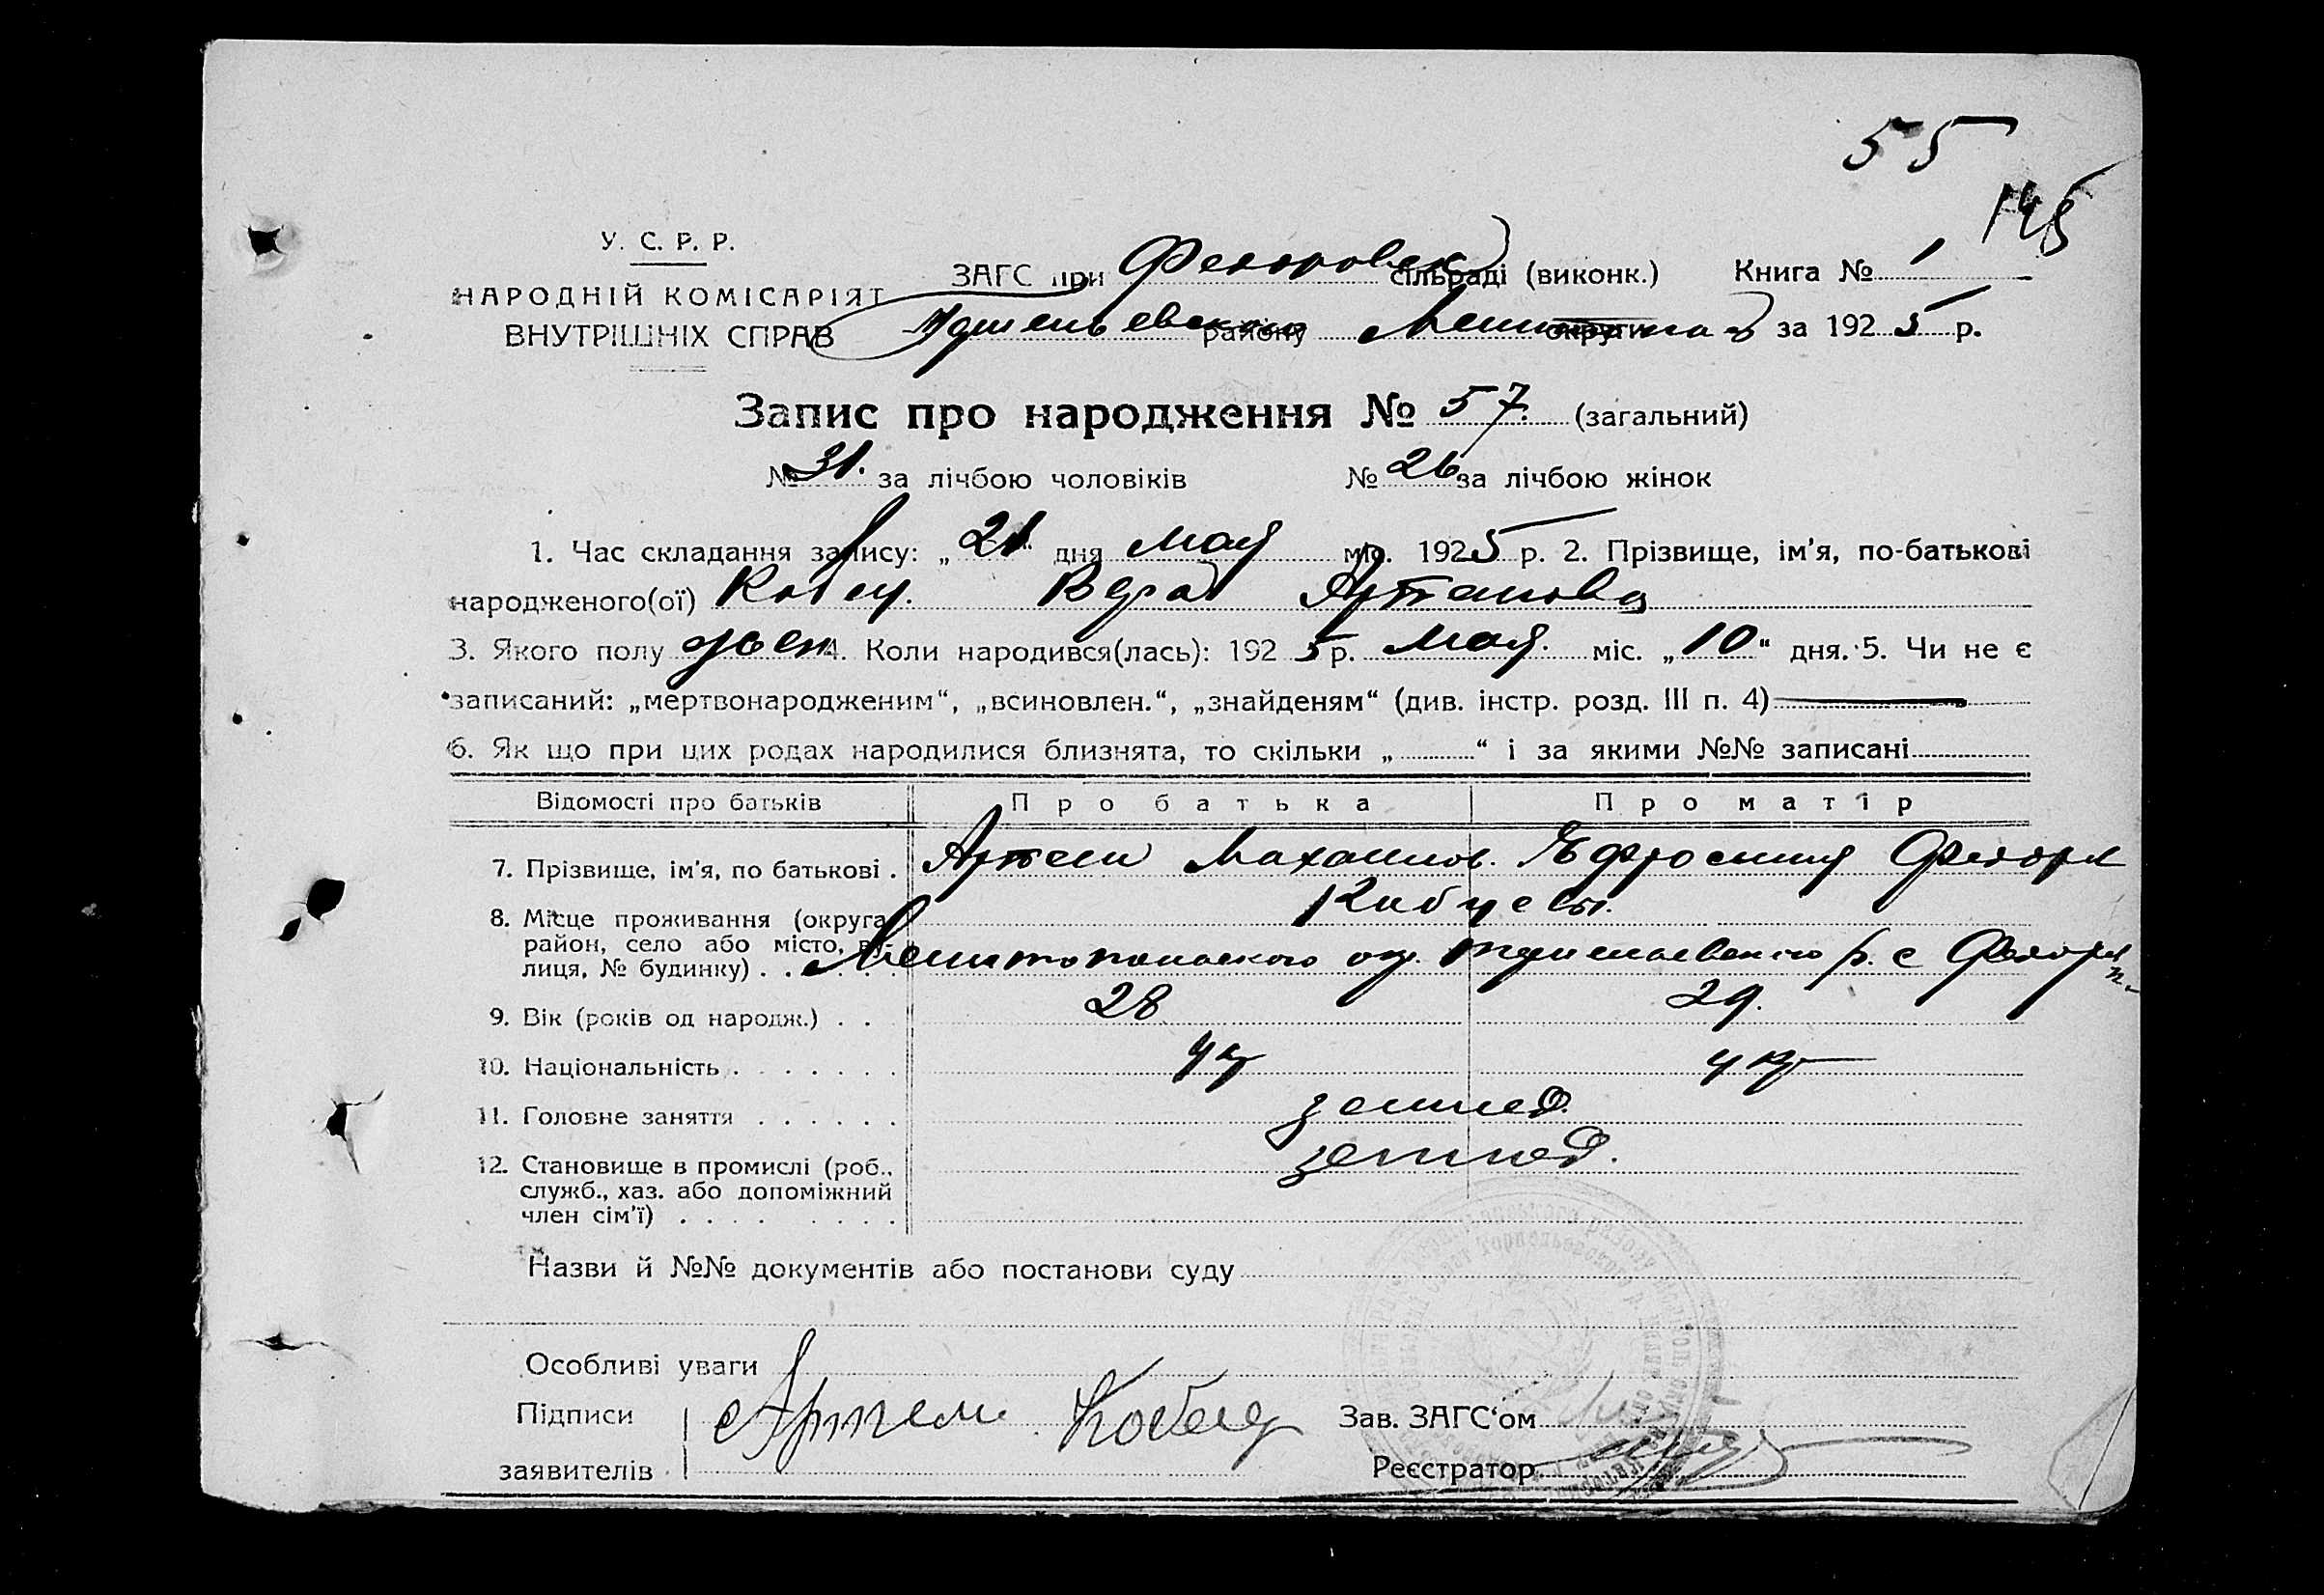 55
145
У. С. Р. Р.
НАРОДНІЙ КОМІСАРІЯТ
ВНУТРІШНІХ СПРАВ
ЗАГС при Федоровск сільраді (виконк.) Книга № 1
району округи за 1925 р.
Запис про народження № 57. (загальний)
№ 31. за лічбою чоловіків № 26 за лічбою жінок
1. Час складання запису: „21“ дня мая міс. 1925 р. 2. Прізвище, ім'я, по-батькові
народженого(ої) Кобец. Вера Артемова
3. Якого полу жен 4. Коли народився(лась): 1925 р. мая. міс. „10“ дня. 5. Чи не є
записаний: „мертвонародженим“, „всиновлен.“, „знайденям“ (див. інстр. розд. III п. 4)
6. Як що при цих родах народилися близнята, то скільки „ “ і за якими №№ записані
Відомості про батьків Про батька Про матір
7. Прізвище, ім'я, по батькові . Артем Махаилов. Ефросиния Федор
Кобцевы.
8. Місце проживання (округа,
район, село або місто, ву-
лиця, № будинку) . . Мелитопольского ок. р. с Федоров
9. Вік (років од народж.) . . 28 29.
10. Національність . . . . . . . Ук Укр
11. Головне заняття . . . . . . землед.
12. Становище в промислі (роб., землед.
служб., хаз. або допоміжний
член сім'ї) . . . . . . . .
Назви й №№ документів або постанови суду
Особливі уваги
Підписи Артем Кобец Зав. ЗАГС'ом
заявителів Реєстратор